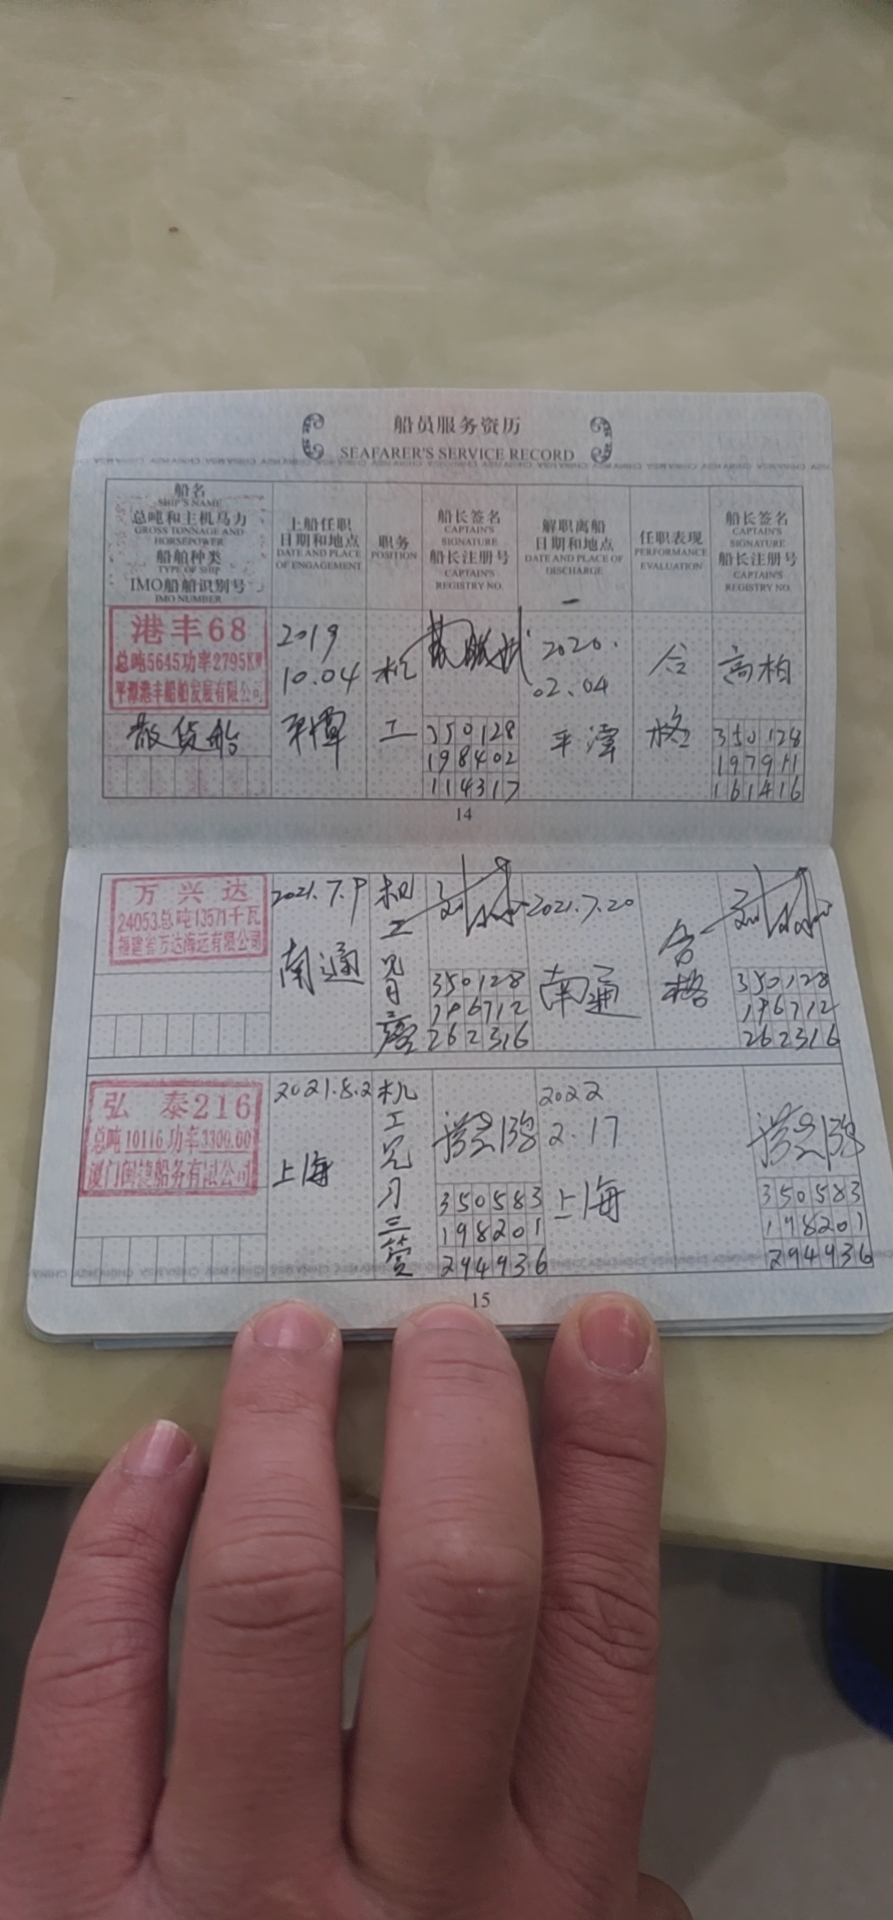 船员服务资历
SEAFARER'S SERVICE RECORD
船名
SHIP'S NAME
总吨和主机马力
GROSS TONNAGE AND
HORSEPOWER
船舶种类
TYPE OF SHIP
IMO船舶识别号
IMO NUMBER
上船任职
日期和地点
DATE AND PLACE
OF ENGAGEMENT
职务
POSITION
船长签名
CAPTAIN'S
SIGNATURE
船长注册号
CAPTAIN'S
REGISTRY NO.
解职离船
日期和地点
DATE AND PLACE OF
DISCHARGE
任职表现
PERFORMANCE
EVALUATION
船长签名
CAPTAIN'S
SIGNATURE
船长注册号
CAPTAIN'S
REGISTRY NO.
港丰68
总吨5645功率2795KW
平潭港丰船舶发展有限公司
散货船
2019
10.04
平潭
机
工
350128
198402
114317
2020.
02.04
平潭
合
格
高柏
350128
197911
161416
14
万兴达
24053总吨13571千瓦
福建省万达海运有限公司
2021.7.9
南通
机
工
350128
196712
262316
2021.7.20
南通
合
格
350128
196712
262316
弘泰216
总吨10116功率3300.00
厦门闽捷船务有限公司
2021.8.2
上海
机
工
见
习
三
管
350583
198201
294936
2022
2.17
上海
350583
198201
294936
15